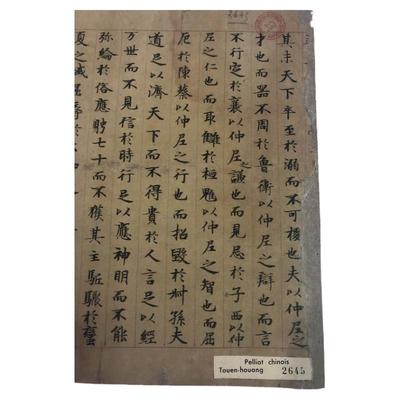 其末天下卒至於溺而不可援也夫以仲尼之
才也而器不周於魯衛以仲尼之辯也而言
不行定於襄以仲尼之謙也而見忌於子西以仲
尼之仁也而取讎於桓魋以仲尼之智也而屈
厄於陳蔡以仲尼之行也而招毀於叔孫夫
道足以濟天下而不得貴於人言足以經
万世而不見信於時行足以應神明而不能
弥綸於俗應聘七十而不獲其主駈驟於蠻
夏之域屈辱於
2645
Pelliot chinois
Touen-houang 2645